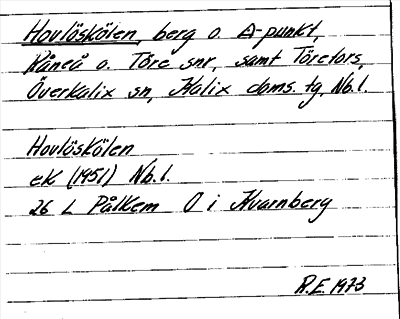 Hovlöskölen, berg o. Δ-punkt,
Råneå o. Töre snr, samt Töretors,
Överkalix sn, Kalix doms. tg, Nb. l.
Hovlöskölen
eK (1951) Nb. l.
26 L Pålkem O i Kvarnberg
R.E. 1973